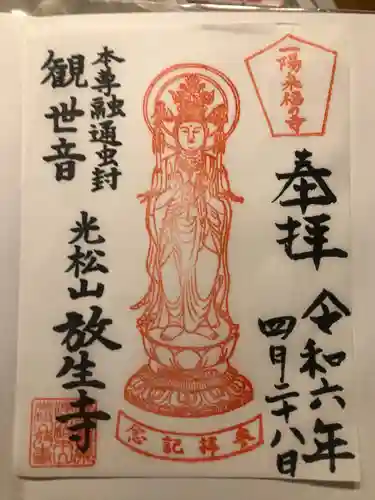 一陽来福の寺
奉拝
令和六年
四月二十八日
参拝記念
本尊融通虫封
観世音
光松山
放生寺